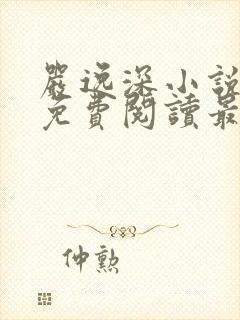 嚴逸深小說
免費閱讀最
仲勲